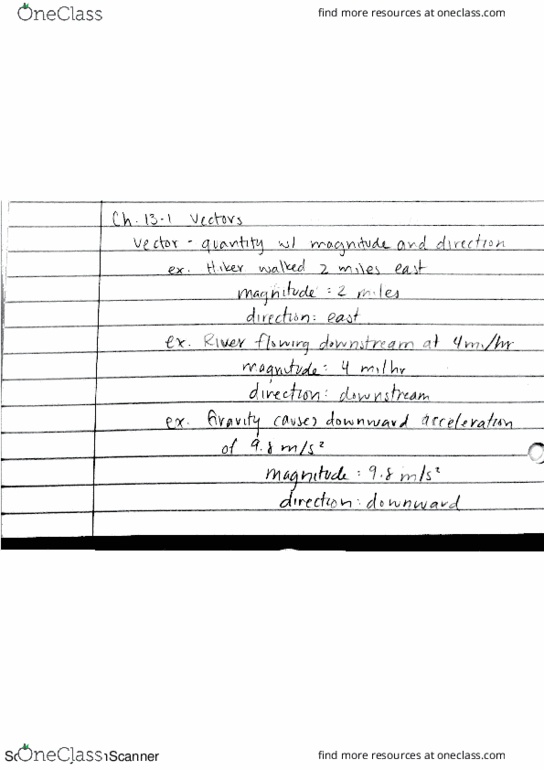 OneClass
find more resources at oneclass.com
Ch. 13.1 Vectors
Vector - quantity w/ magnitude and direction
ex. Hiker walked 2 miles east
magnitude: 2 miles
direction: east
ex. River flowing downstream at 4mi/hr
magnitude: 4 mi/hr
direction: downstream
ex. Gravity causes downward acceleration
of 9.8 m/s²
magnitude: 9.8 m/s²
direction: downward
OneClass
Scanner
find more resources at oneclass.com